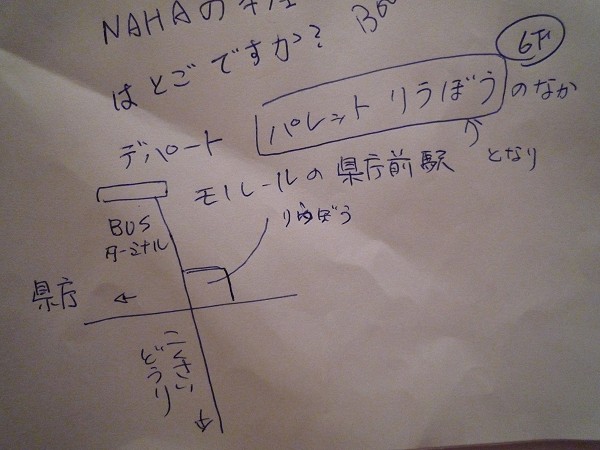 NAHAの
はどこですか?
6F
デパート パレットりうぼうのなか
モノレールの県庁前駅 となり
BUS
ターミナル
りうぼう
県庁 ←
こくさい
どうり